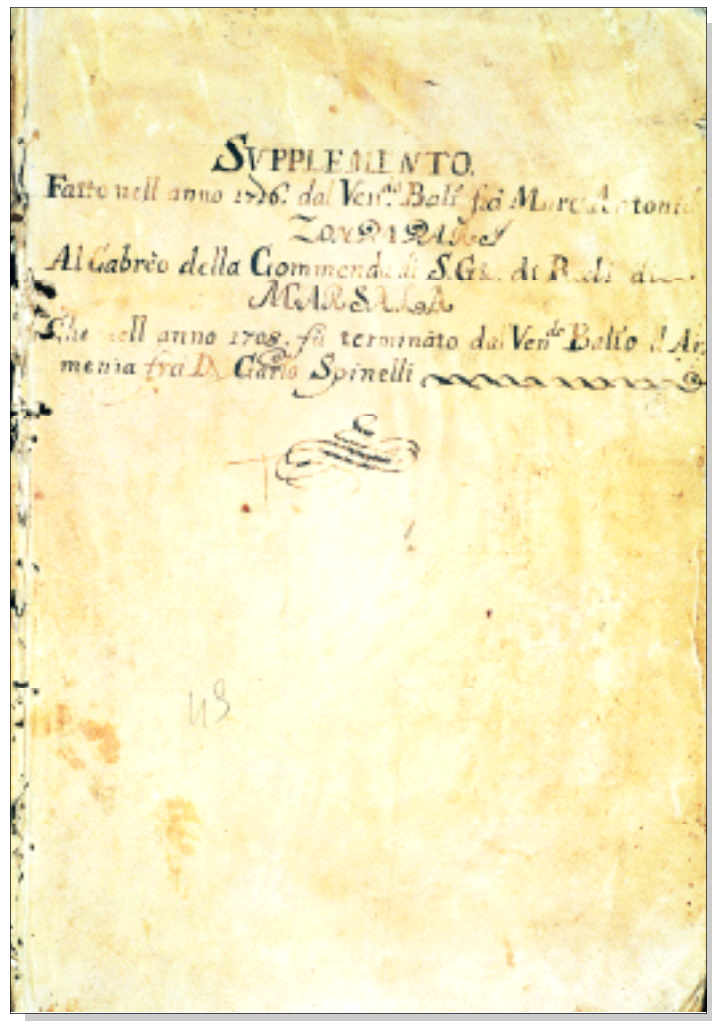 SVPPLEMENTO.
Fatto nell anno 1716. dal Ven.do Balì frà Marc Antonio
ZONDADARI
Al Cabrèo della Commenda di S. Gio. di Rodi di
MARSALA
Che nell anno 1708. fù terminato dal Ven.do Balio d Ar
menia frà D. Carlo Spinelli